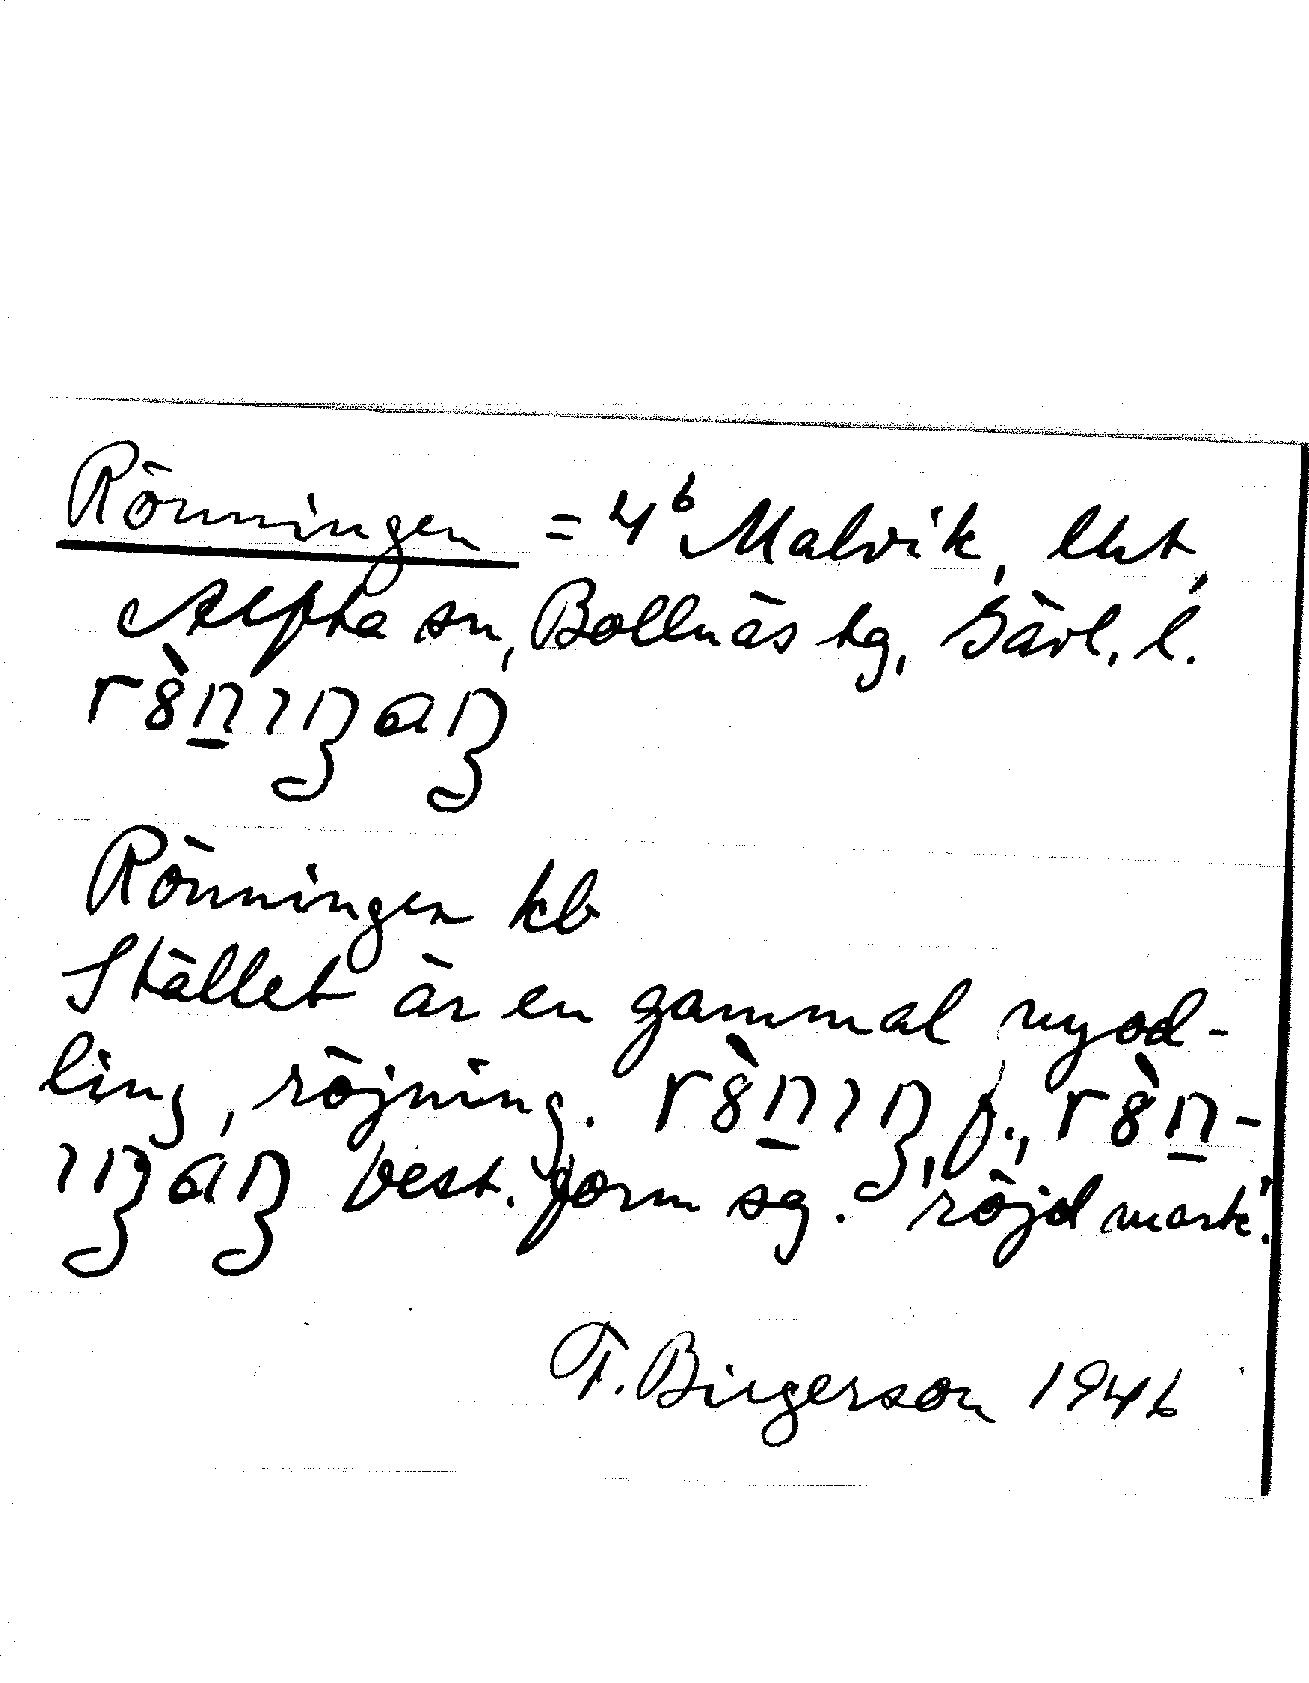 Rönningen = 4ᵇ Malvik, lht,
Alfta sn, Bollnäs tg, Gävl. l.
r8̀n̲ıŋaŋ
Rönningen kb
Stället är en gammal nyod-
ling, röjning. r8̀n̲ıŋ, f., r8̀n̲-
ıŋaŋ best. form sg. 'röjd mark'.
F. Birgerson 1946